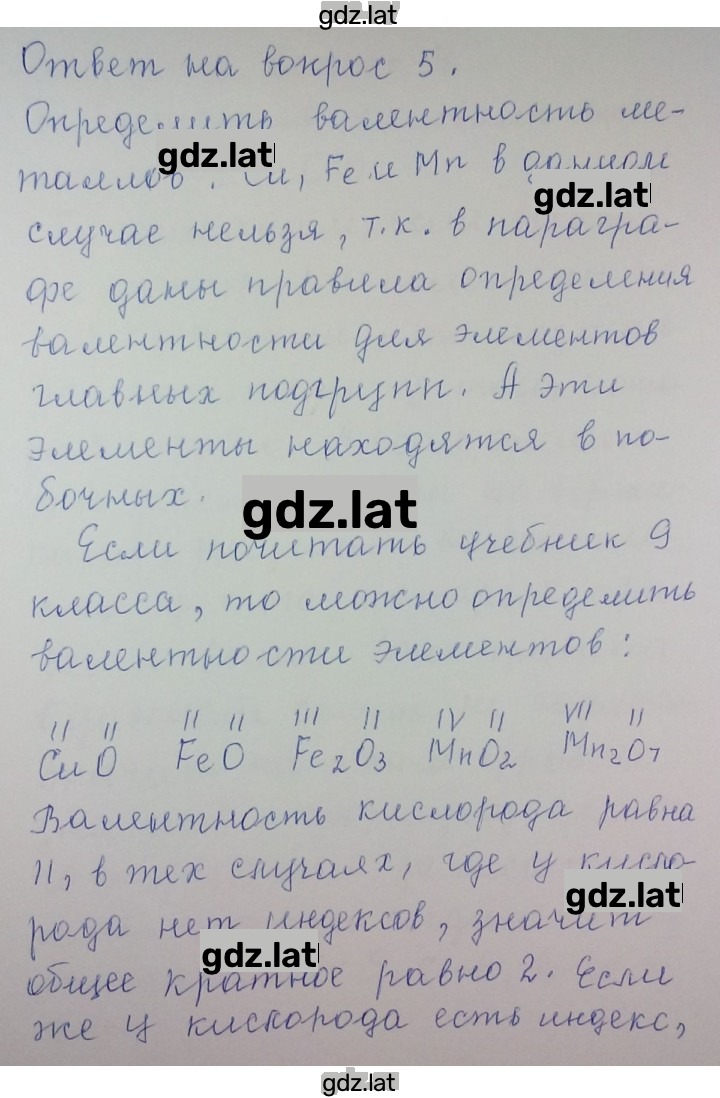 gdz.lat
Ответ на вопрос 5.
Определить валентность ме-
gdz.lat
таллов: Cu, Fe и Mn в данном
gdz.lat
случае нельзя, т.к. в парагра-
фе даны правила определения
валентности для элементов
главных подгрупп. А эти
элементы находятся в по-
бочных.
gdz.lat
Если почитать учебник 9
класса, то можно определить
валентности элементов:
II II II II III II IV II VII II
CuO FeO Fe₂O₃ MnO₂ Mn₂O₇
Валентность кислорода равна
II, в тех случаях, где у кисло-
gdz.lat
рода нет индексов, значит
gdz.lat
общее кратное равно 2. Если
же у кислорода есть индекс,
gdz.lat